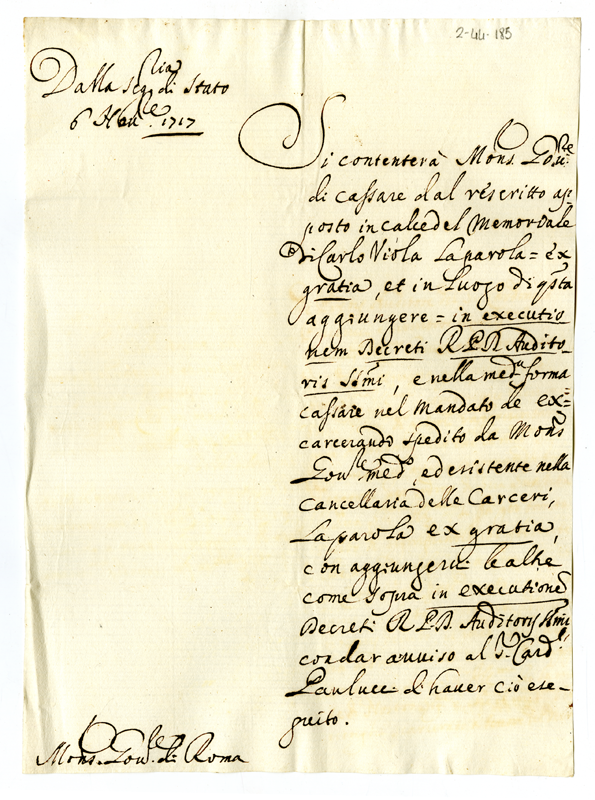 2-44-185
Dalla Seg.ria di Stato
6 Xbre. 1717
Si contenterà Mons. Gov.re
di cassare dal rescritto ap=
posto in calce del Memoriale
di Carlo Viola la parola = ex
gratia, et in luogo di q.sta
aggiungere = in executio
nem Decreti R.P.D. Audito-
ris SS.mi, e nella med.a forma
cassare nel Mandato de ex=
carcerando spedito da Mons.
Gov.re med.o, ed esistente nella
Cancellaria delle Carceri,
la parola ex gratia,
con aggiungervi le altre
come sopra in executione
Decreti R.P.D. Auditoris SS.mi
con dar avviso al S. Card.l
Paulucci di haver ciò ese-
guito.
Mons. Gov.re di Roma